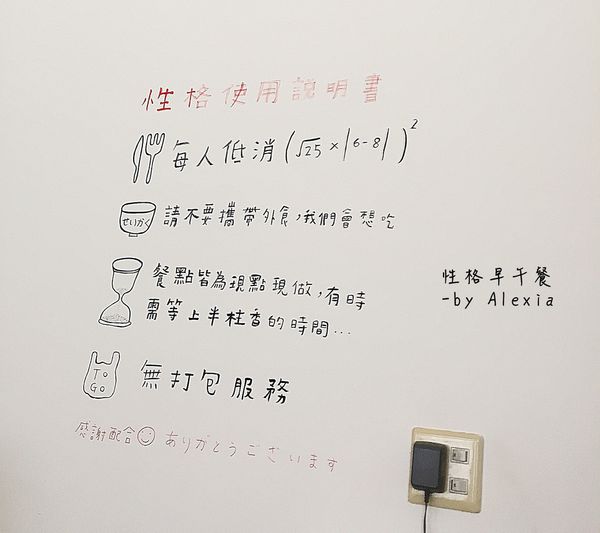 性格使用説明書
每人低消(√25×|6-8|)²
せいかく
請不要攜帶外食,我們會想吃
餐點皆為現點現做,有時
需等上半柱香的時間...
TO
GO
無打包服務
感謝配合 ありがとうございます
性格早午餐
-by Alexia